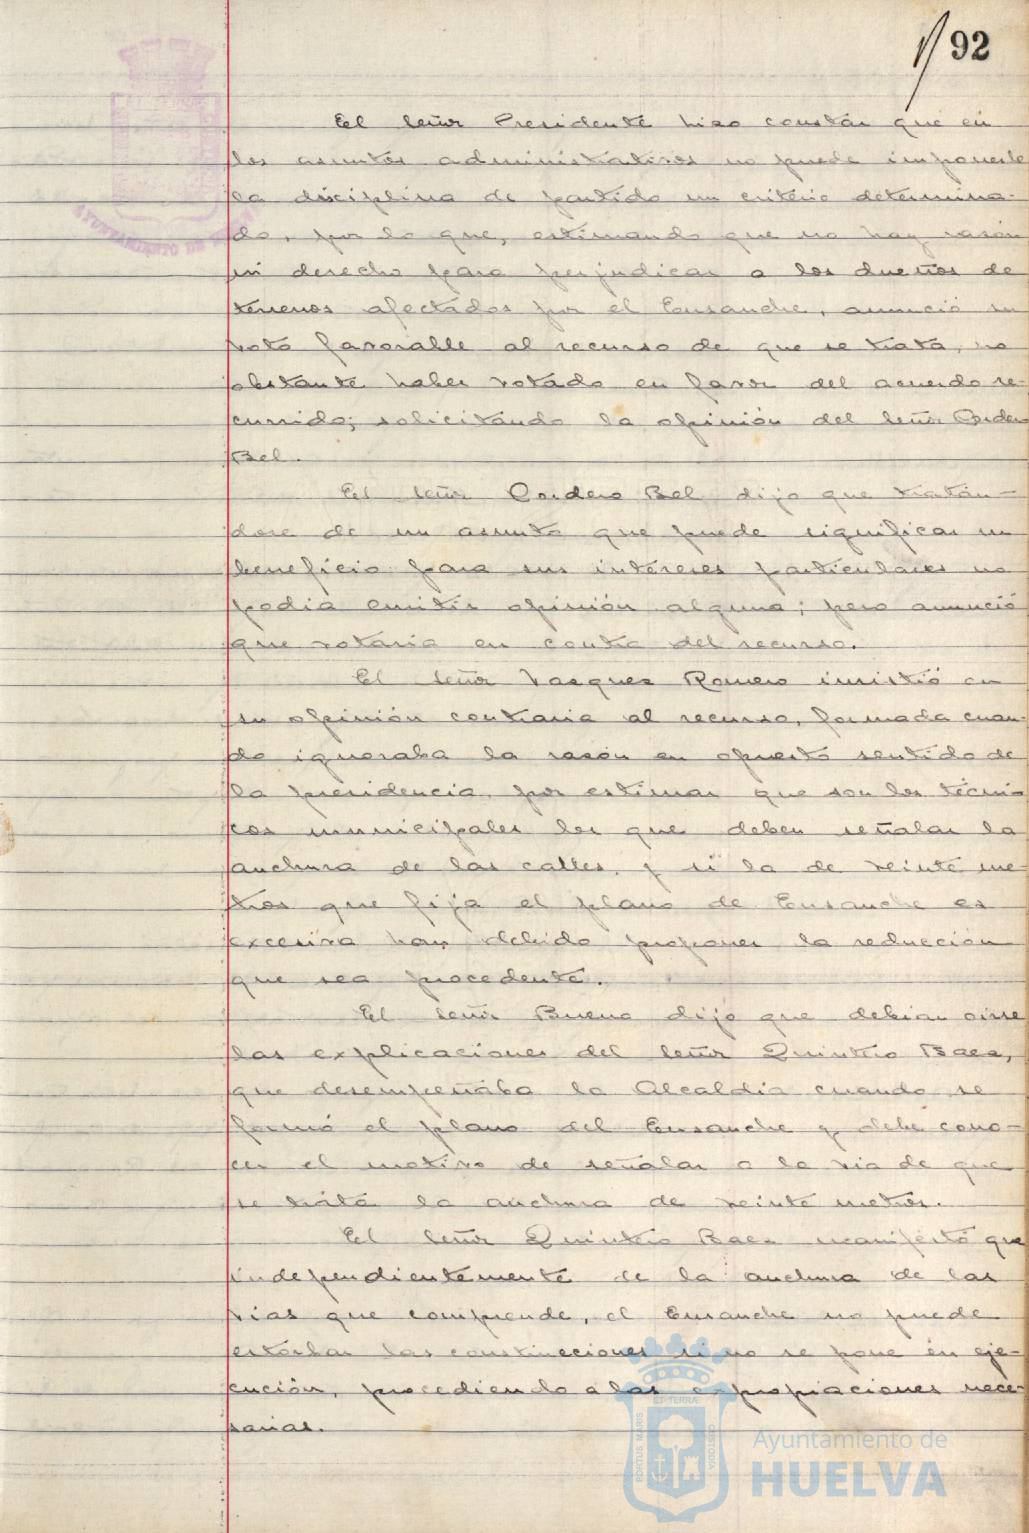 92
El señor Presidente hizo constar que en
los asuntos administrativos no puede imponerle
la disciplina de partido un criterio determina-
do, por lo que, estimando que no hay razón
ni derecho para perjudicar a los dueños de
terrenos afectados por el Ensanche, anunció su
voto favorable al recurso de que se trata, no
obstante haber votado en favor del acuerdo re-
currido; solicitando la opinión del señor Cordero
Bel.
El señor Cordero Bel dijo que tratán-
dose de un asunto que puede significar un
beneficio para sus intereses particulares no
podia emitir opinión alguna; pero anunció
que votaria en contra del recurso.
El señor Vazquez Romero insistió en
su opinión contraria al recurso, formada cuan-
do ignoraba la razón en opuesto sentido de
la presidencia, por estimar que son los técni-
cos municipales los que deben señalar la
anchura de las calles, y si la de veinte me-
tros que fija el plano de Ensanche es
excesiva han debido proponer la reducción
que sea procedente.
El señor Bueno dijo que debian oirse
las explicaciones del señor Quintero Baez,
que desempeñaba la Alcaldía cuando se
formó el plano del Ensanche y debe cono-
cer el motivo de señalar a la via de que
se trata la anchura de veinte metros.
El señor Quintero Baez manifestó que
independientemente de la anchura de las
vias que comprende, el Ensanche no puede
estorbar las construcciones si no se pone en eje-
cución, procediendo a las expropiaciones nece-
sarias.
AYUNTAMIENTO DE
PORTUS MARIS ET TERRAE CUSTODIA
Ayuntamiento de
HUELVA